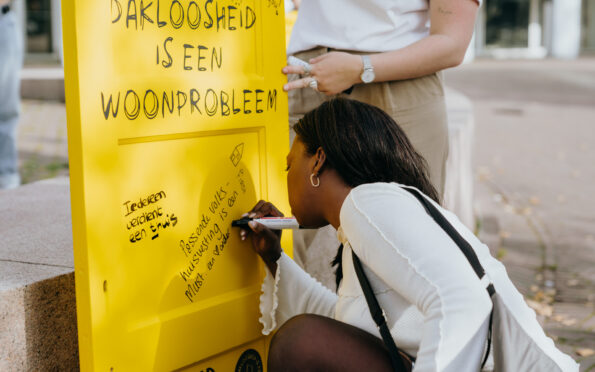 DAKLOOSHEID
IS EEN
WOONPROBLEEM
Iedereen
verdient
een thuis
Passende volks-
huisvesting is een
Must.